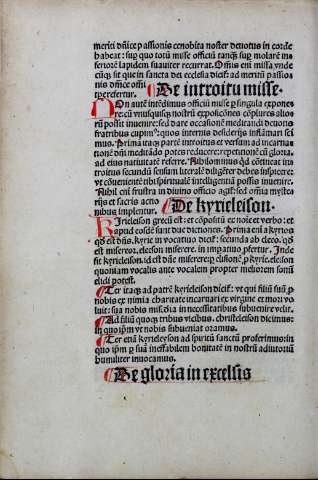 meriti dn̄ice passionis cenobita noster deuotus in corde
habeat: sup quo totū misse officiū tanq̄ sup molarē in-
feriorē lapidem suauiter recurrat. Offm̄ eni missa vnde
cūq̄ sit que in sancta dei ecclesia dicit: ad meritū passio
nis
De introitu misse.
Non autē intēdimus officiū misse p singula expone
rios
rū possit inuenire: sed dare occasionē meditandi deuotis
fratribus cupim⁹: quos internis desiderijs inflāmari sci
mus. Prima itaq̄ parte introitus et versum ad incarnati
onē dn̄i meditādo potes reducere: repetitionē cū gloria.
ad eius natiuitatē referre. Nihilominus
troitus secundū sensum literalē diligēter debes inspicere:
vt cōuenientē tibi spiritualē intelligentiā possis inuenire.
Nihil eni frustra in diuino officio agit: sed omia myste-
rijs et sacris
nibus implentur.
De kyrieleison.
Kirieleison grecū est: et cōpositū ex noīe et verbo: et
rapud eos sunt due dictiones. Prima eni a kyrios
qd̄ est dn̄s, kyrie in vocatiuo dicit: secunda ab eleeo, qd̄
est misereor, eleison miserere, in impatiuo pfertur. Inde
fit kyrieleison, id est dn̄e miserere: p elisionē p kyrie, eleison
quoniam vocalis ante vocalem propter meliorem sonū
elidi potest.
Ter itaq̄ ad patrē kyrieleison dicit: vt qui filiū suū p
nobis ex nimia charitate incarnari ex virgine et mori vo
luit: sua nobis miscdia in necessitatibus subuenire velit.
Ad filiū quoq̄ tribus vicibus, christeleison dicimus:
in quo ipm̄ vt nobis subueniat oramus.
Ter etiā kyrieleyson ad spiritū sanctū proferimus: in
quo ipm̄ p suā ineffabilem bonitatē in nostrū adiutoriū
humiliter inuocamus.
De gloria in excelsis